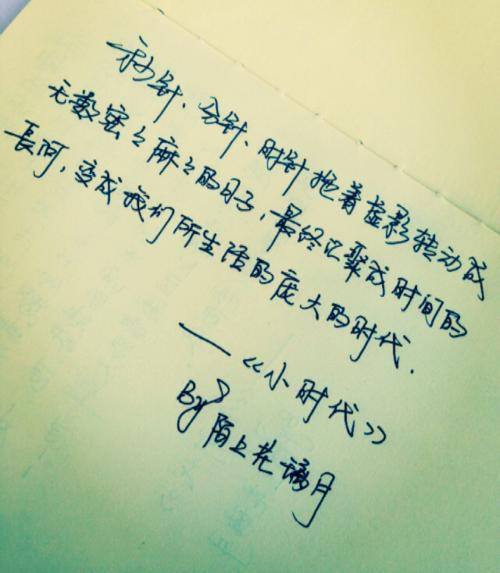 秒针、分针、时针拖着虚影转动成
无数密々麻々的日子,最终汇聚成时间的
長河,变成我们所生活的庞大的时代.
——《小时代》
By 陌上花谪月